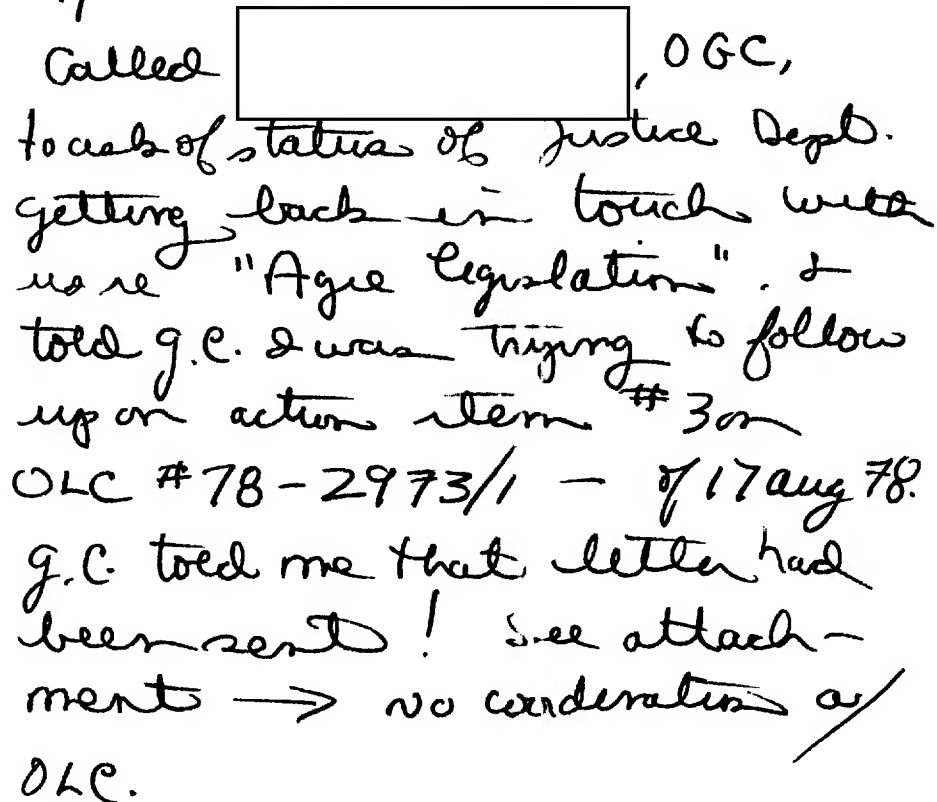 Called , OGC,
to ask of status of Justice Dept.
getting back in touch with
us re "Agee legislation". I
told g.c. I was trying to follow
up on action item #3 on
OLC #78-2973/1 — of 17 Aug 78.
g.c. told me that letter had
been sent! See attach-
ment → no coordination w/
OLC.